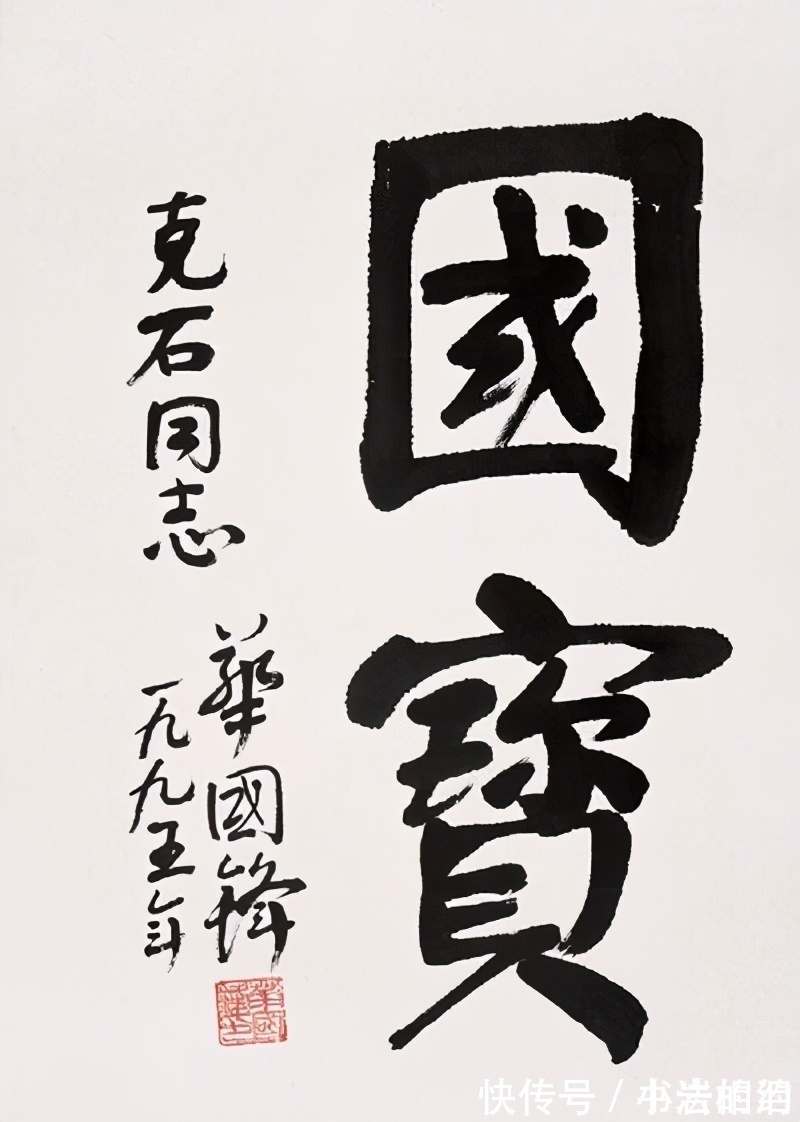 國寶
克石同志
華國鋒
一九九五年
快传号/